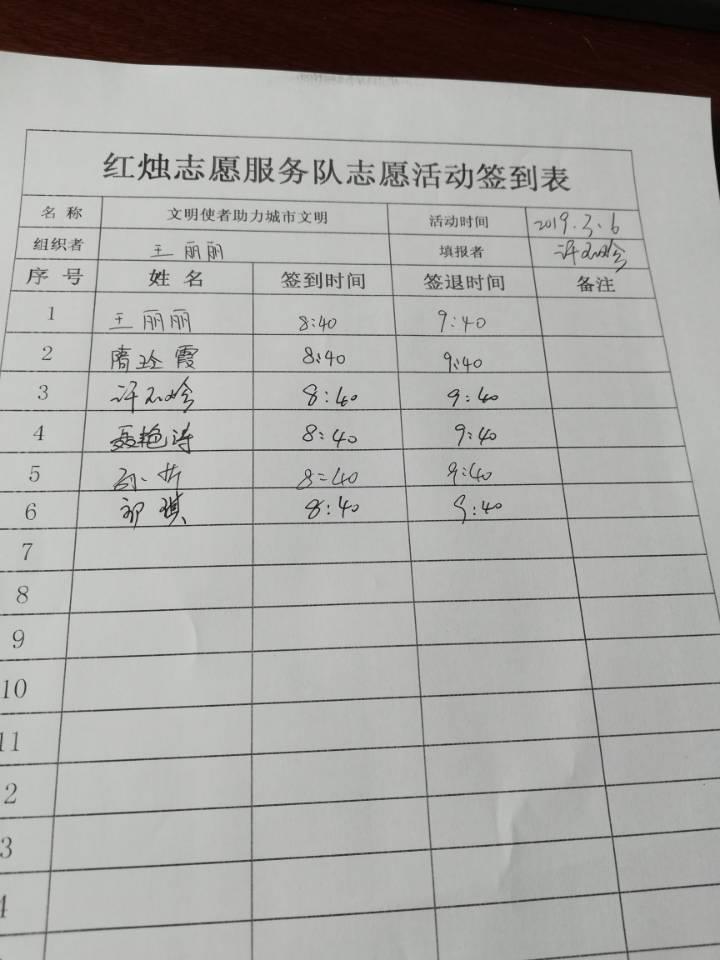 红烛志愿服务队志愿活动签到表
名 称 文明使者助力城市文明 活动时间 2019.3.6
组织者 王丽丽 填报者
序 号 姓 名 签到时间 签退时间 备注
1 王丽丽 8:40 9:40
2 隋玲霞 8:40 9:40
3 8:40 9:40
4 聂艳涛 8:40 9:40
5 8:40 9:40
6 祁琪 8:40 9:40
7
8
9
10
11
2
3
4